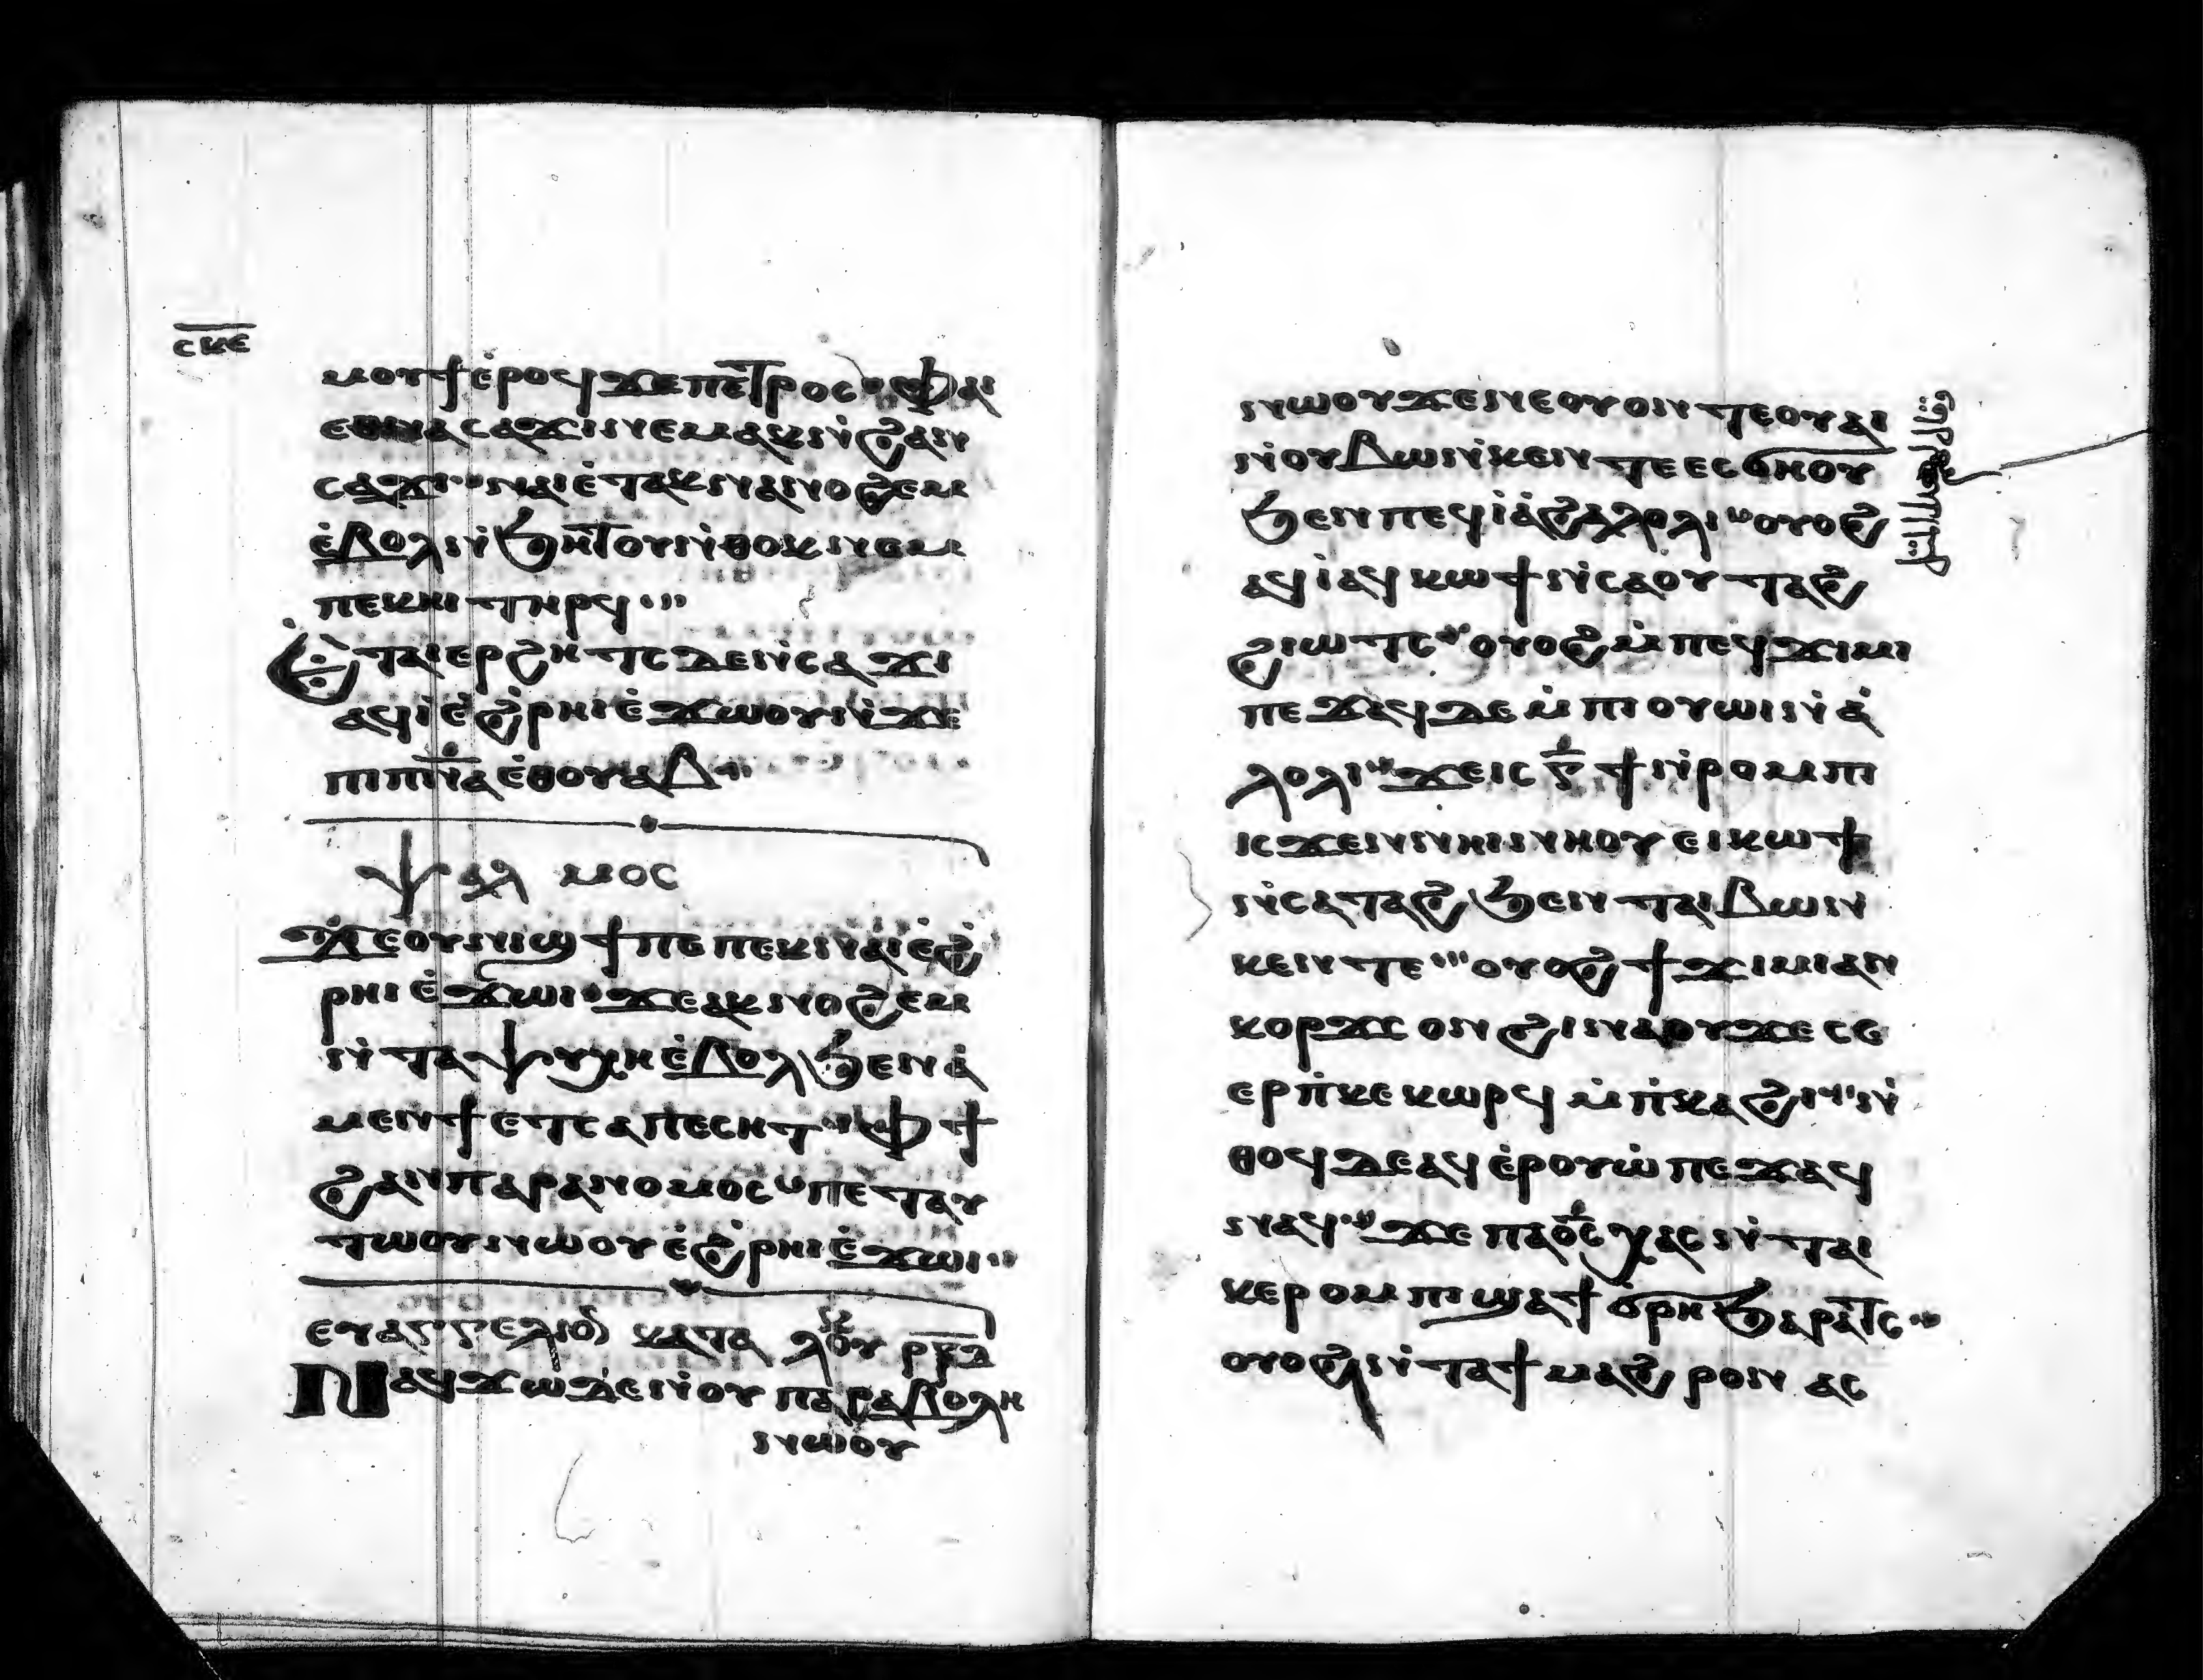 ⲥⲕⲉ
ⲙⲟⲩϯⲉ̀ⲣⲟϥϫⲉⲡⲉⲧⲣⲟⲥ ⲫⲁⲓ
ⲉⲑⲛⲁⲥⲁϫⲓⲛⲉⲙⲁⲕⲛ̀ϩⲁⲛ
ⲥⲁϫⲓ ⲛⲁⲓⲉ̀ⲧⲁⲕⲛⲁⲛⲟϩⲉⲙ
ⲉ̀ⲃⲟⲗⲛ̀ϧⲏⲧⲟⲩⲛ̀ⲑⲟⲕⲛⲉⲙ
ⲡⲉⲕⲏⲓ ⲧⲏⲣϥ
Ⲉⲧⲁⲓⲉⲣϩⲏⲧⲥ ⲇⲉⲛⲥⲁϫⲓ
ⲁϥⲓ̀ⲉ̀ϩ̀ⲣⲏⲓⲉ̀ϫⲱⲟⲩⲛ̀ϫⲉ
ⲡⲓⲡⲛ̅ⲁⲉ̀ⲑⲟⲩⲁⲃ
ⲯⲁⲗ ⲙⲟⲥ
ϫⲉⲟⲩⲛⲓϣϯⲡⲉ ⲡⲉⲕⲛⲁⲓⲉ̀ϩ̀
ⲣⲏⲓ ⲉ̀ϫⲱⲓ ϫⲉⲁⲕⲛⲟϩⲉⲙ
ⲛ̀ⲧⲁⲯⲩⲭⲏⲉ̀ⲃⲟⲗϧⲉⲛⲁ̀
ⲙⲉⲛϯ ⲉⲧⲥⲁⲡⲉⲥⲏⲧ ⲫϯ
ϩⲁⲛⲡⲁⲣⲁⲛⲟⲙⲟⲥ ⲡⲉⲧⲁⲩ
ⲧⲱⲟⲩⲛⲱⲟⲩⲉ̀ϩ̀ⲣⲏⲓⲉ̀ϫⲱⲓ
ⲉⲩⲁⲅⲅⲉⲗⲓⲟ ⲕⲁⲧⲁ ⲗⲟⲩ ⲣⲕⲇ
Ⲛⲁϥϫⲱⲇⲉⲛ̀ⲟⲩ ⲡⲁⲣⲁⲃⲟⲗⲏ
ⲛⲱⲟⲩ
ⲛⲱⲟⲩϫⲉⲛⲉⲟⲩⲟⲛ ⲧⲉⲟⲩⲁⲓ
ⲛ̀ⲟⲩⲃⲱⲛ̀ⲕⲉⲛⲧⲉ ⲉⲥϭⲏⲟⲩ
ϧⲉⲛⲡⲉϥⲓ̀ⲁ̀ϩⲁⲗⲟⲗⲓ ⲟⲩⲟϩ
ⲁϥⲓ̀ⲁϥⲕⲱϯ ⲛ̀ⲥⲁⲟⲩⲧⲁϩ
ϩⲓⲱⲧⲥ ⲟⲩⲟϩⲙ̀ⲡⲉϥϫⲓⲙⲓ
ⲡⲉϫⲁϥⲇⲉⲙ̀ⲡⲓⲟⲩⲱⲓⲛⲁ̀
ⲗⲟⲗⲓ ϫⲉⲓⲥ ⲅ̅ϯⲛ̀ⲣⲟⲙⲡⲓ
ⲓⲥϫⲉⲛⲛⲏⲓⲛⲏⲟⲩⲉⲓⲕⲱϯ
ⲛ̀ⲥⲁⲧⲁϩ ϧⲉⲛ ⲧⲁⲓⲃⲱⲛ
ⲕⲉⲛⲧⲉ ⲟⲩⲟϩϯϫⲓⲙⲓⲁⲛ
ⲕⲟⲣϫⲥ ⲟⲛϩⲓⲛⲁⲟⲩϫⲉⲥⲉ
ⲉⲣⲡ̀ⲕⲉⲕⲱⲣϥ ⲙ̀ⲡ̀ⲕⲁϩⲓ ⲛ̀
ⲑⲟϥⲇⲉⲁϥⲉ̀ⲣⲟⲩⲱ̀ ⲡⲉϫⲁϥ
ⲛⲁϥ ϫⲉ ⲡⲁⲟ̅ⲥ ⲭⲁⲥⲛ̀ⲧⲁⲓ
ⲕⲉⲣⲟⲙⲡⲓϣⲁϯϭⲣⲏϧⲁⲣⲁⲧⲥ
ⲟⲩⲟϩⲛ̀ⲧⲁϯⲙⲁϩⲣⲟⲛ ⲁⲥ